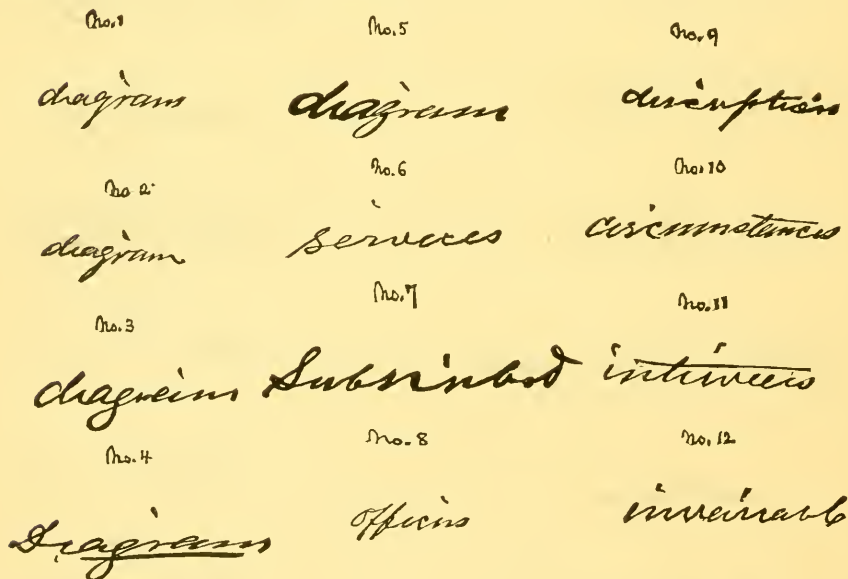 No. 1
diagram
No 2
diagram
No. 3
diagram
No. 4
Diagram
No. 5
diagram
No. 6
services
No. 7
Subscribed
No. 8
offices
No. 9
discription
No. 10
circumstances
No. 11
interviews
No. 12
invariable